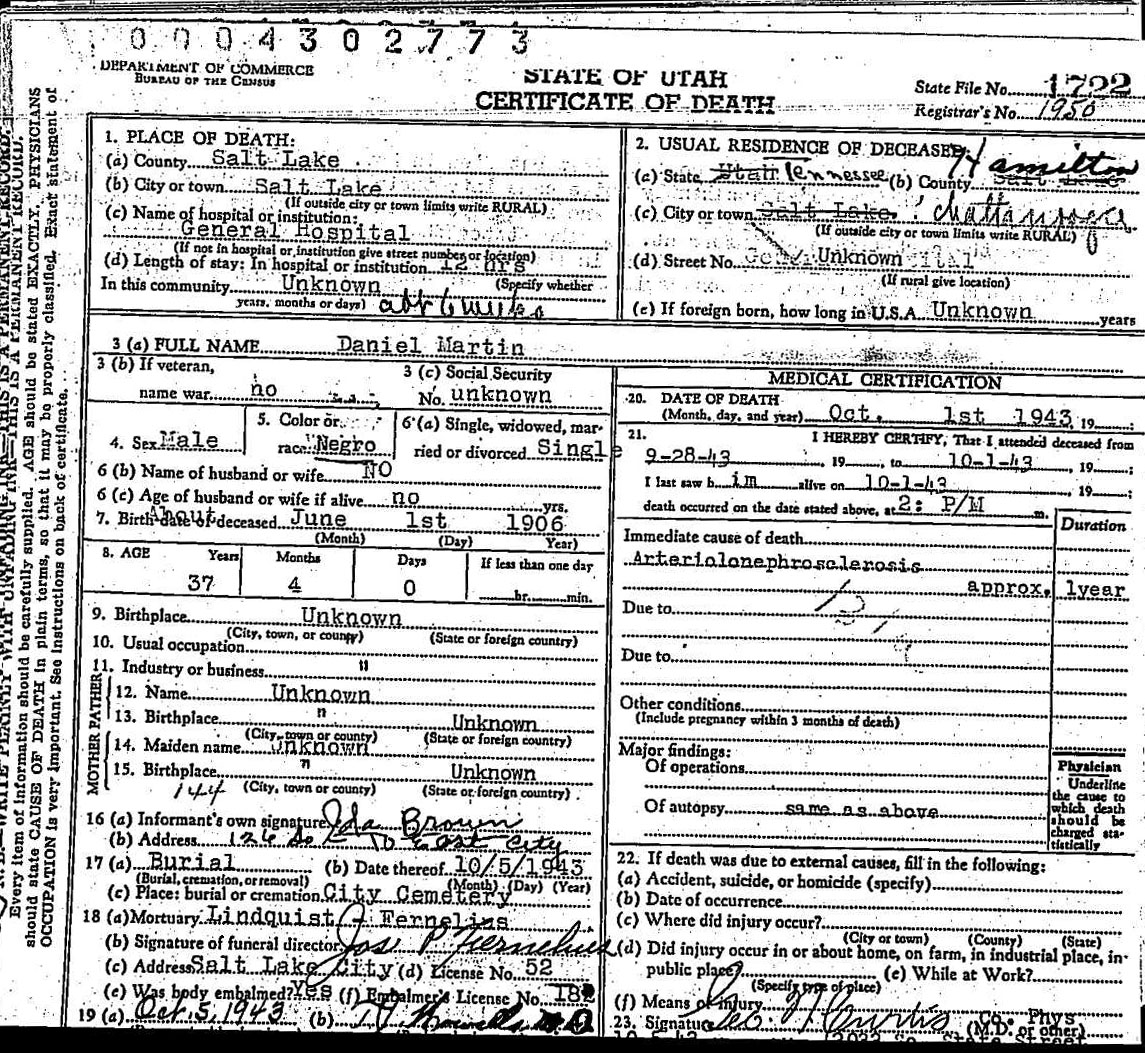 0004302773
DEPARTMENT OF COMMERCE
BUREAU OF THE CENSUS
STATE OF UTAH
CERTIFICATE OF DEATH
State File No. 1722
Registrar's No. 1950
1. PLACE OF DEATH:
(a) County Salt Lake
(b) City or town Salt Lake
(If outside city or town limits write RURAL)
(c) Name of hospital or institution:
General Hospital
(If not in hospital or institution give street number or location)
(d) Length of stay: In hospital or institution 12 hrs
In this community Unknown (Specify whether
years, months or days) abt 6 weeks
2. USUAL RESIDENCE OF DECEASED: Hamilton
(a) State Utah Tennessee (b) County Salt Lake
(c) City or town Salt Lake Chattanooga
(If outside city or town limits write RURAL)
(d) Street No. Unknown
(If rural give location)
(e) If foreign born, how long in U.S.A. Unknown years
3 (a) FULL NAME Daniel Martin
3 (b) If veteran, 3 (c) Social Security
name war no No. unknown
4. Sex Male 5. Color or race Negro 6 (a) Single, widowed, married or divorced Single
6 (b) Name of husband or wife NO
6 (c) Age of husband or wife if alive no yrs.
7. Birth date of deceased About June 1st 1906
(Month) (Day) Year)
8. AGE Years Months Days If less than one day
37 4 0 hr. min.
9. Birthplace Unknown
(City, town, or county) (State or foreign country)
10. Usual occupation
11. Industry or business "
FATHER
12. Name Unknown
13. Birthplace " Unknown
(City, town or county) (State or foreign country)
MOTHER
14. Maiden name Unknown
15. Birthplace " Unknown
144 (City, town or county) (State or foreign country)
16 (a) Informant's own signature Ida Brown
(b) Address 126 So East City
17 (a) Burial (b) Date thereof 10/5/1943
(Burial, cremation, or removal) (Month) (Day) (Year)
(c) Place: burial or cremation City Cemetery
18 (a) Mortuary Lindquist & Fernelius
(b) Signature of funeral director Jos P Fernelius
(c) Address Salt Lake City (d) License No. 52
(e) Was body embalmed? Yes (f) Embalmer's License No. 182
19 (a) Oct. 5, 1943 (b)
MEDICAL CERTIFICATION
20. DATE OF DEATH
(Month, day, and year) Oct. 1st 1943 19 :
21. I HEREBY CERTIFY, That I attended deceased from
9-28-43, 19 , to 10-1-43, 19 ;
I last saw him alive on 10-1-43, 19 ;
death occurred on the date stated above, at 2: P/M m.
Duration
Immediate cause of death
Arteriolonephrosclerosis
approx. 1year
Due to
Due to
Other conditions
(Include pregnancy within 3 months of death)
Major findings:
Of operations
Of autopsy same as above
Physician
Underline
the cause to
which death
should be
charged sta-
tistically
22. If death was due to external causes, fill in the following:
(a) Accident, suicide, or homicide (specify)
(b) Date of occurrence
(c) Where did injury occur?
(City or town) (County) (State)
(d) Did injury occur in or about home, on farm, in industrial place, in-
public place? (e) While at Work?
(Specify type of place)
(f) Means of injury
23. Signature Curtis Co. Phys
(M.D. or other)
State Street
Every item of information should be carefully supplied. AGE should be stated EXACTLY. PHYSICIANS
should state CAUSE OF DEATH in plain terms, so that it may be properly classified. Exact statement of
OCCUPATION is very important. See instructions on back of certificate.